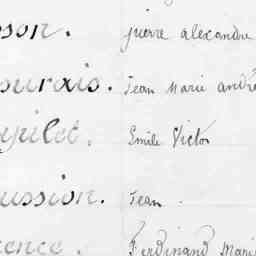 sson. pierre alexandre
ourais. Jean Marie andré
Emile Victor
ussion. Jean.
rence. Ferdinand Marie